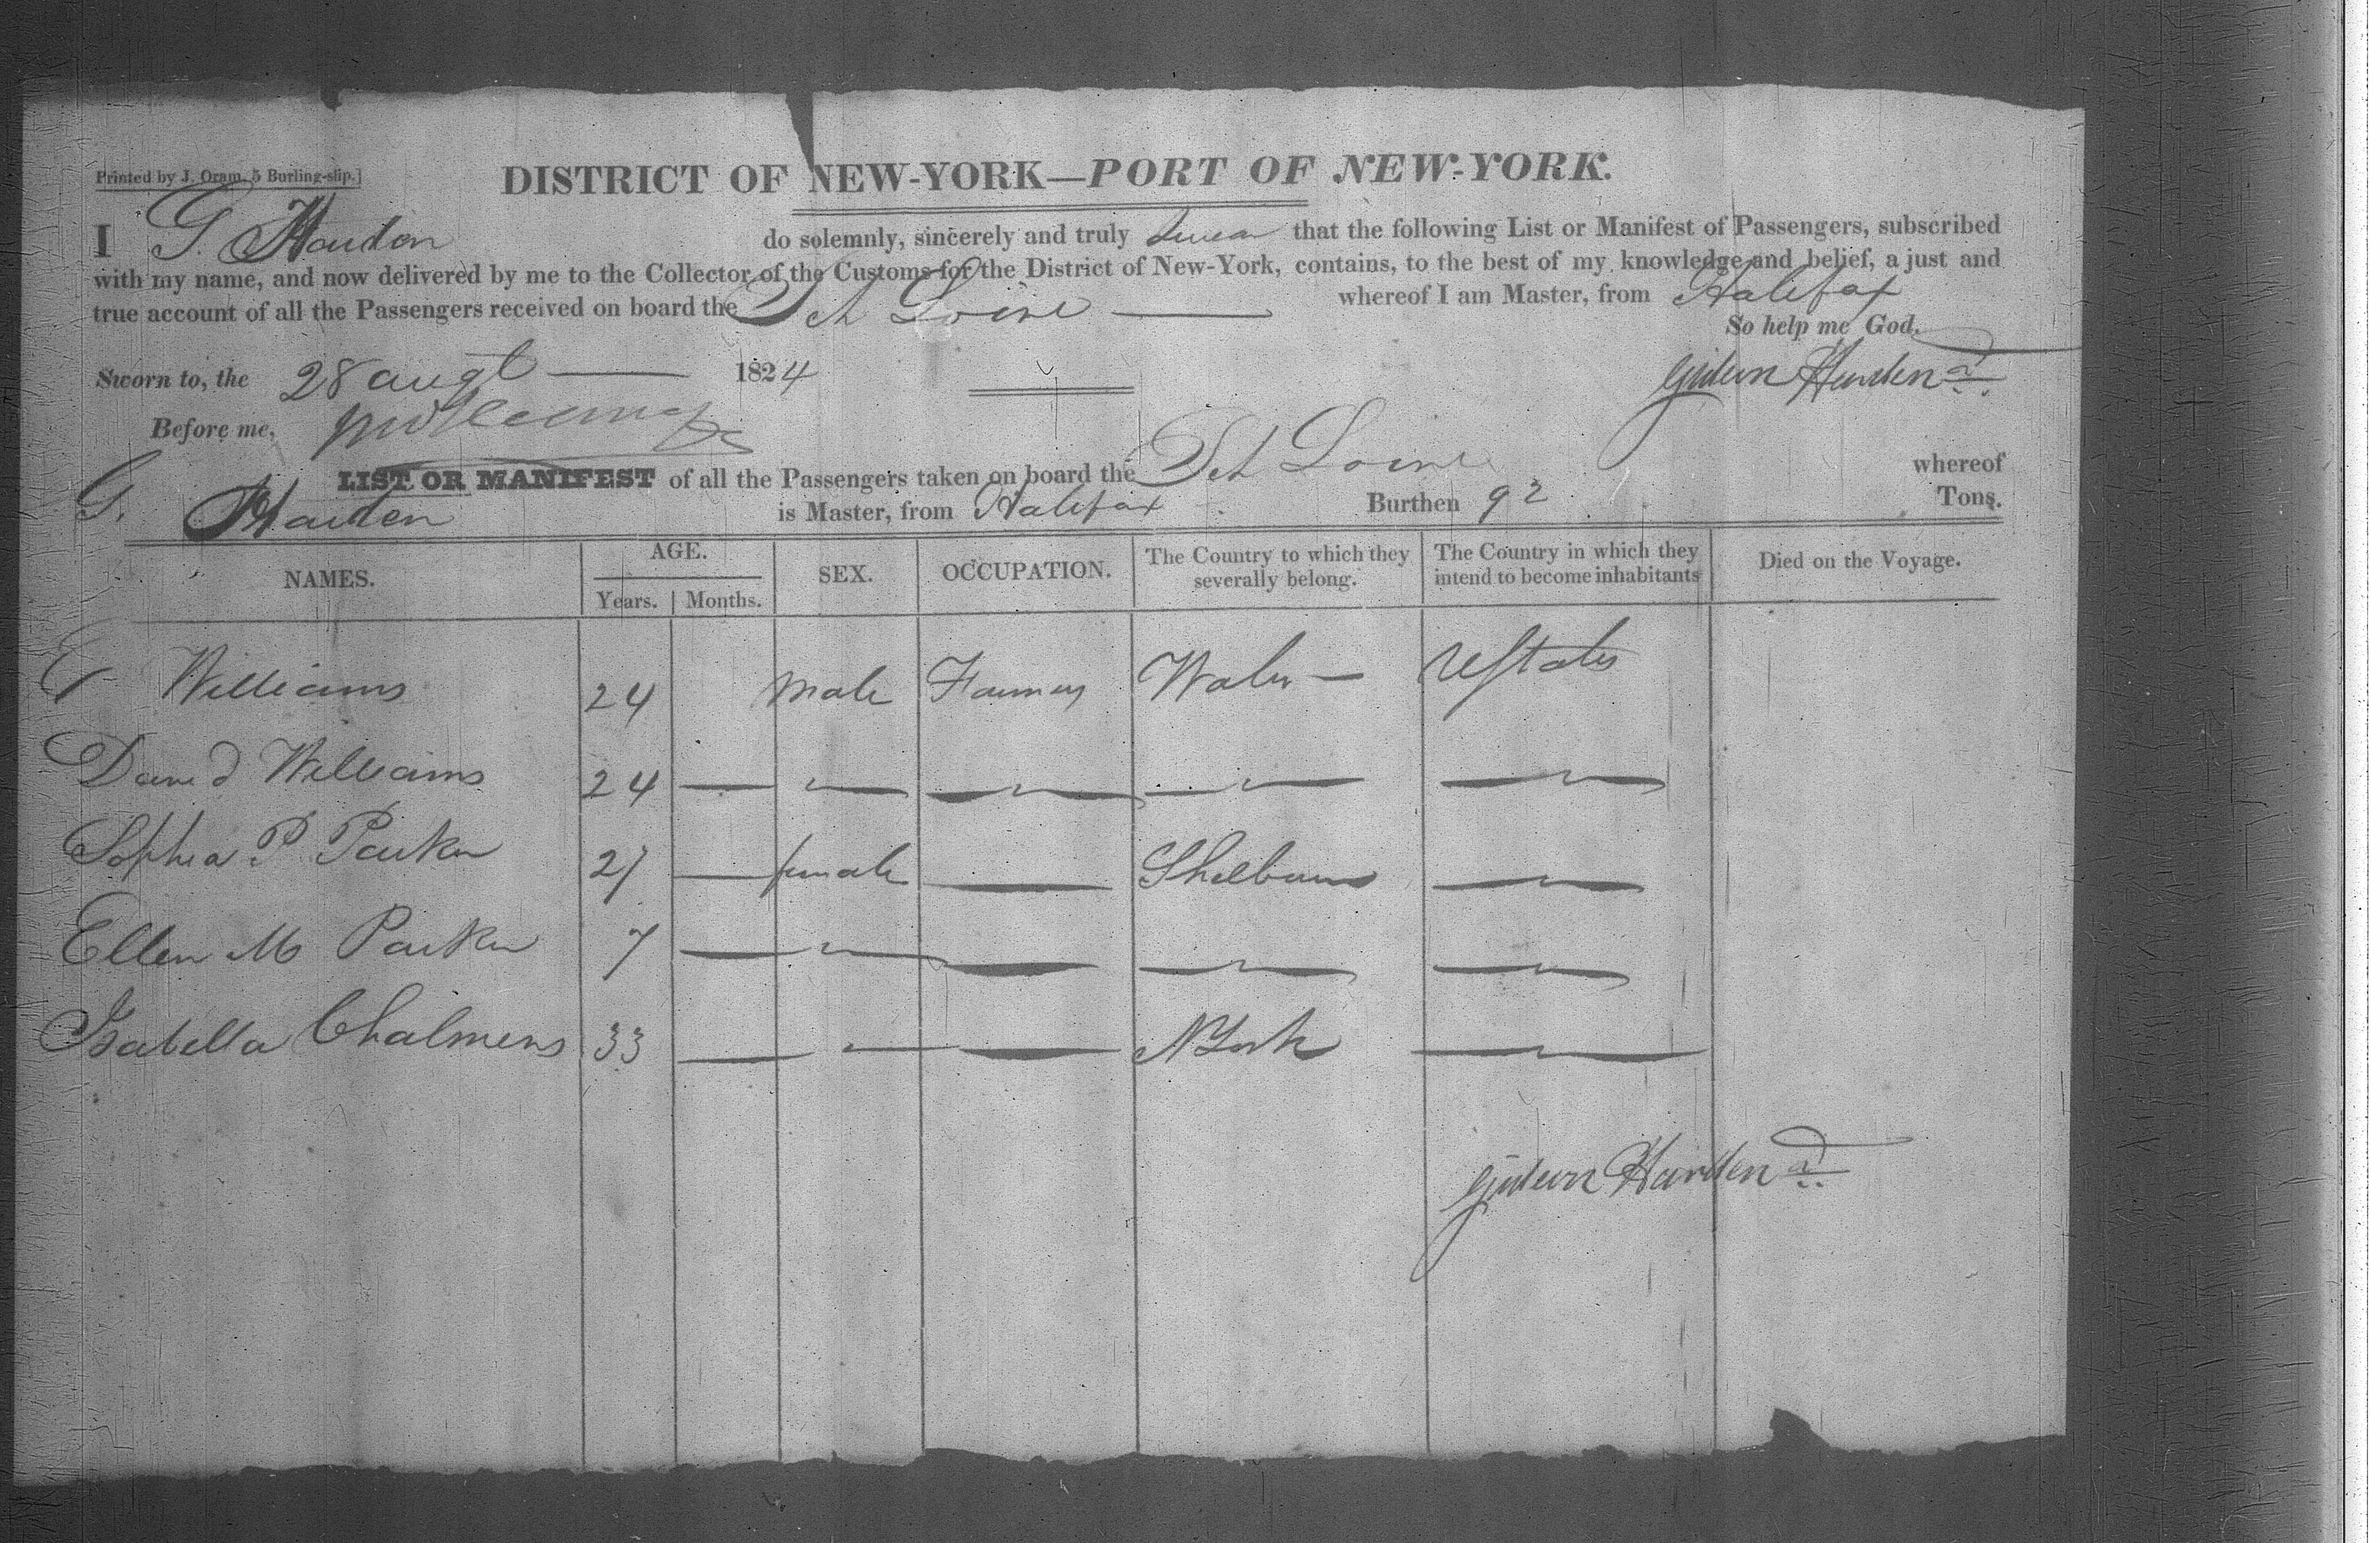 Printed by J. Oram, 5 Burling-slip.]
DISTRICT OF NEW-YORK—PORT OF NEW-YORK.
I G. Harden do solemnly, sincerely and truly Swear that the following List or Manifest of Passengers, subscribed
with my name, and now delivered by me to the Collector of the Customs for the District of New-York, contains, to the best of my knowledge and belief, a just and
true account of all the Passengers received on board the Sch whereof I am Master, from Halifax
So help me God.
Sworn to, the 28 augt 1824
Gideon Harden
Before me,
LIST OR MANIFEST of all the Passengers taken on board the Sch whereof
G. Harden is Master, from Halifax Burthen 92 Tons.
NAMES. AGE. SEX. OCCUPATION. The Country to which they severally belong. The Country in which they intend to become inhabitants Died on the Voyage.
Years. Months.
Williams 24 male Farmer Wales — UStates
David Williams 24 — — — — —
Sophia P Parker 27 — female — Shelburne —
Ellen M Parker 7 — — — — —
Isabella Chalmers 33 — — — NYork —
Gideon Harden